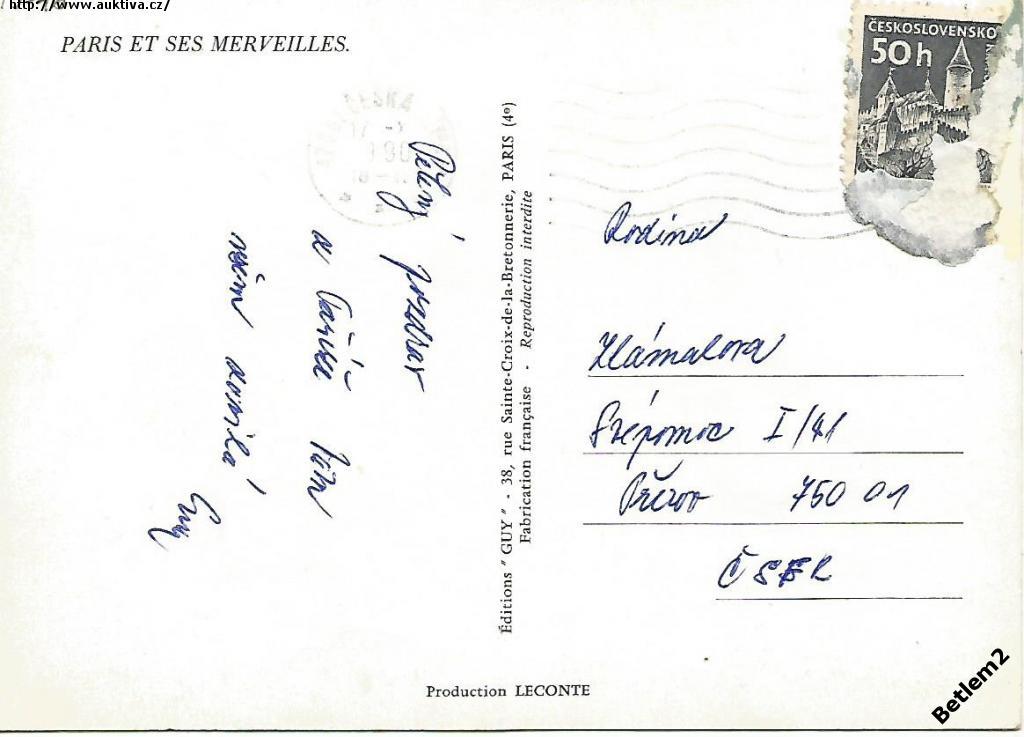 http://www.auktiva.cz/
PARIS ET SES MERVEILLES.
ČESKOSLOVENSKO
50h
pozdrav
z Paříže Vám
všem
Éditions "GUY" - 38, rue Sainte-Croix-de-la-Bretonnerie, PARIS (4º)
Fabrication française - Reproduction interdite
Rodina
Zlámalova
I/41
Přerov 750 01
ČSSR
Production LECONTE
Betlem2